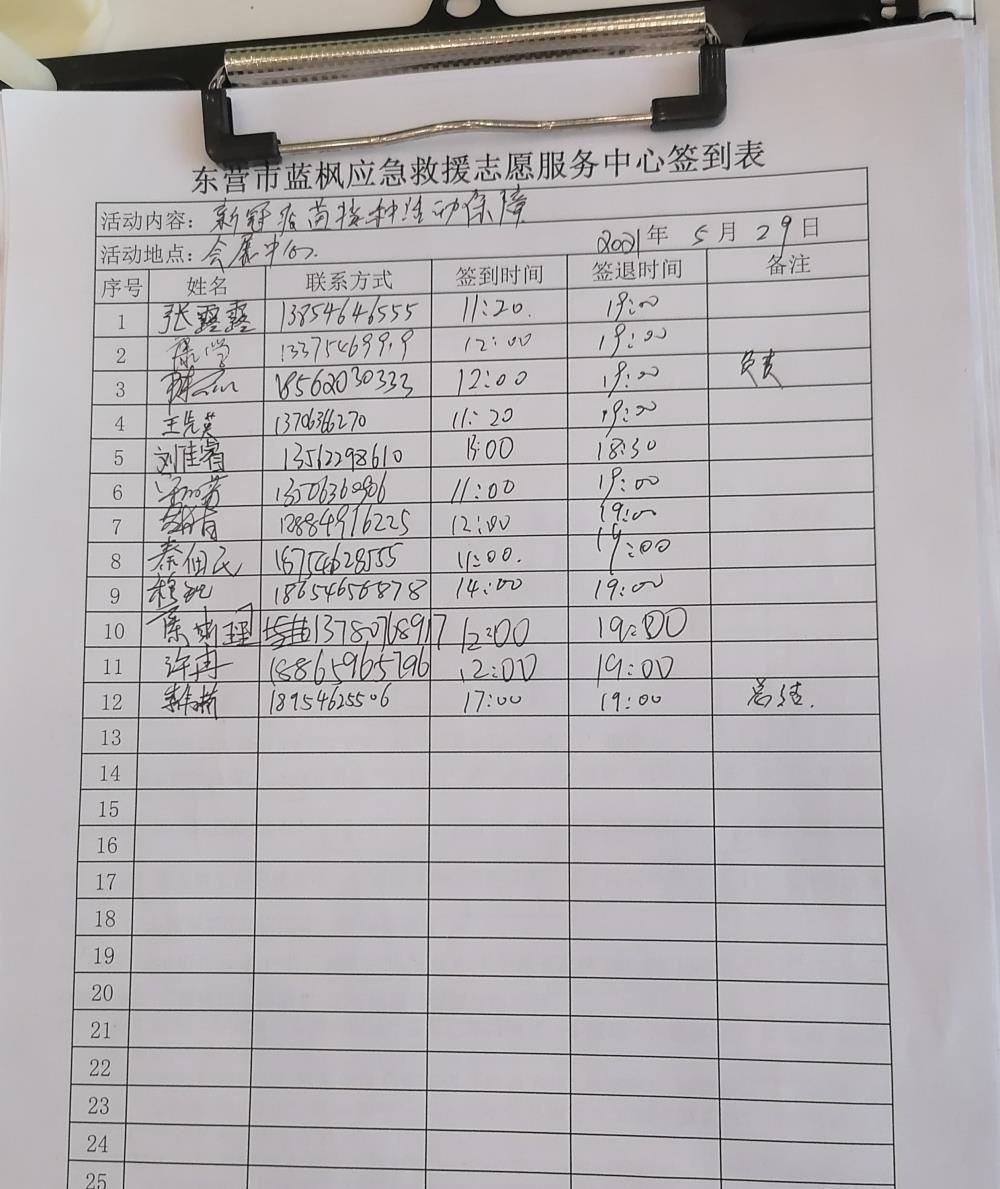 东营市蓝枫应急救援志愿服务中心签到表
活动内容：新冠疫苗接种活动保障
活动地点：会展中心 2021年 5月 29日
序号 姓名 联系方式 签到时间 签退时间 备注
1 张露露 13854646555 11:20. 19:00
2 12:00 19:00
3 18562030333 12:00 19:00 负责
4 王先英 13706366270 11:20 19:00
5 刘佳睿 13512298610 18:30
6 13506360906 11:00 19:00
7 18884916225 12:00 19:00
8 秦佃民 18754628555 11:00. 19:00
9 18654656878 14:00 19:00
10 13780768917 12:00 19:00
11 许冉 18865965796 12:00 19:00
12 18954625506 17:00 19:00
13
14
15
16
17
18
19
20
21
22
23
24
25